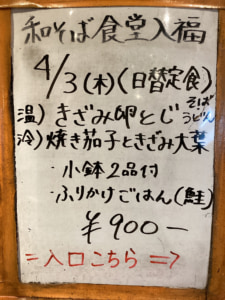 和そば食堂入福
4/3(木)(日替定食)
温)きざみ卵とじ そば うどん
冷)焼き茄子ときざみ大葉
・小鉢2品付
・ふりかけごはん(鮭)
¥900－
=入口こちら⇒